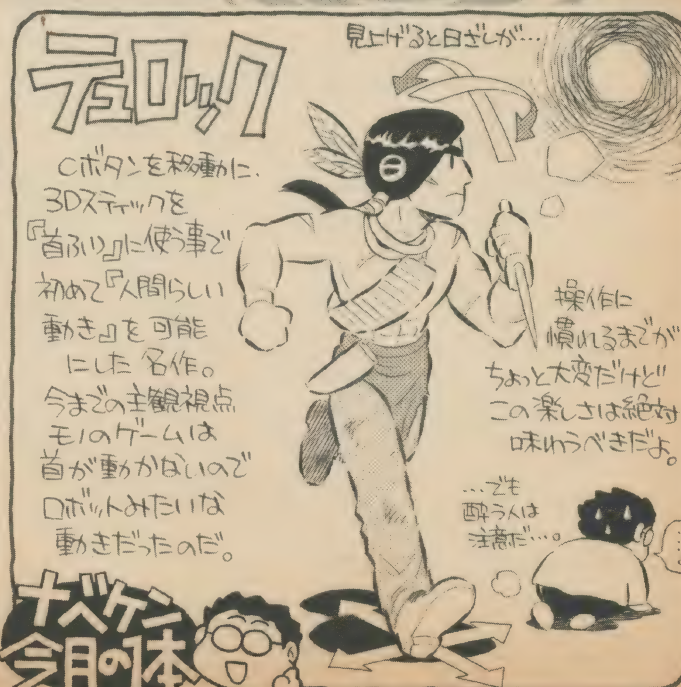 テュロック
見上げると日ざしが…
Cボタンを移動に、
3Dスティックを
『首ふり』に使う事で
初めて『人間らしい
動き』を可能
にした名作。
今までの主観視点
モノのゲームは
首が動かないので
ロボットみたいな
動きだったのだ。
操作に
慣れるまでが
ちょっと大変だけど
この楽しさは絶対
味わうべきだよ。
…でも
酔う人は
注意だ…。
ナベケン
今月の1本